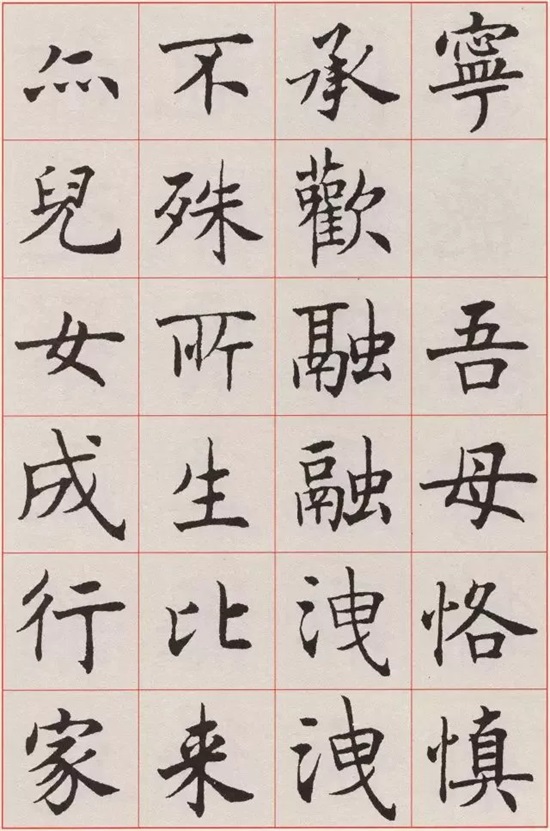 寧 吾母恪慎
承歡融融洩洩
不殊所生比来
亦兒女成行家